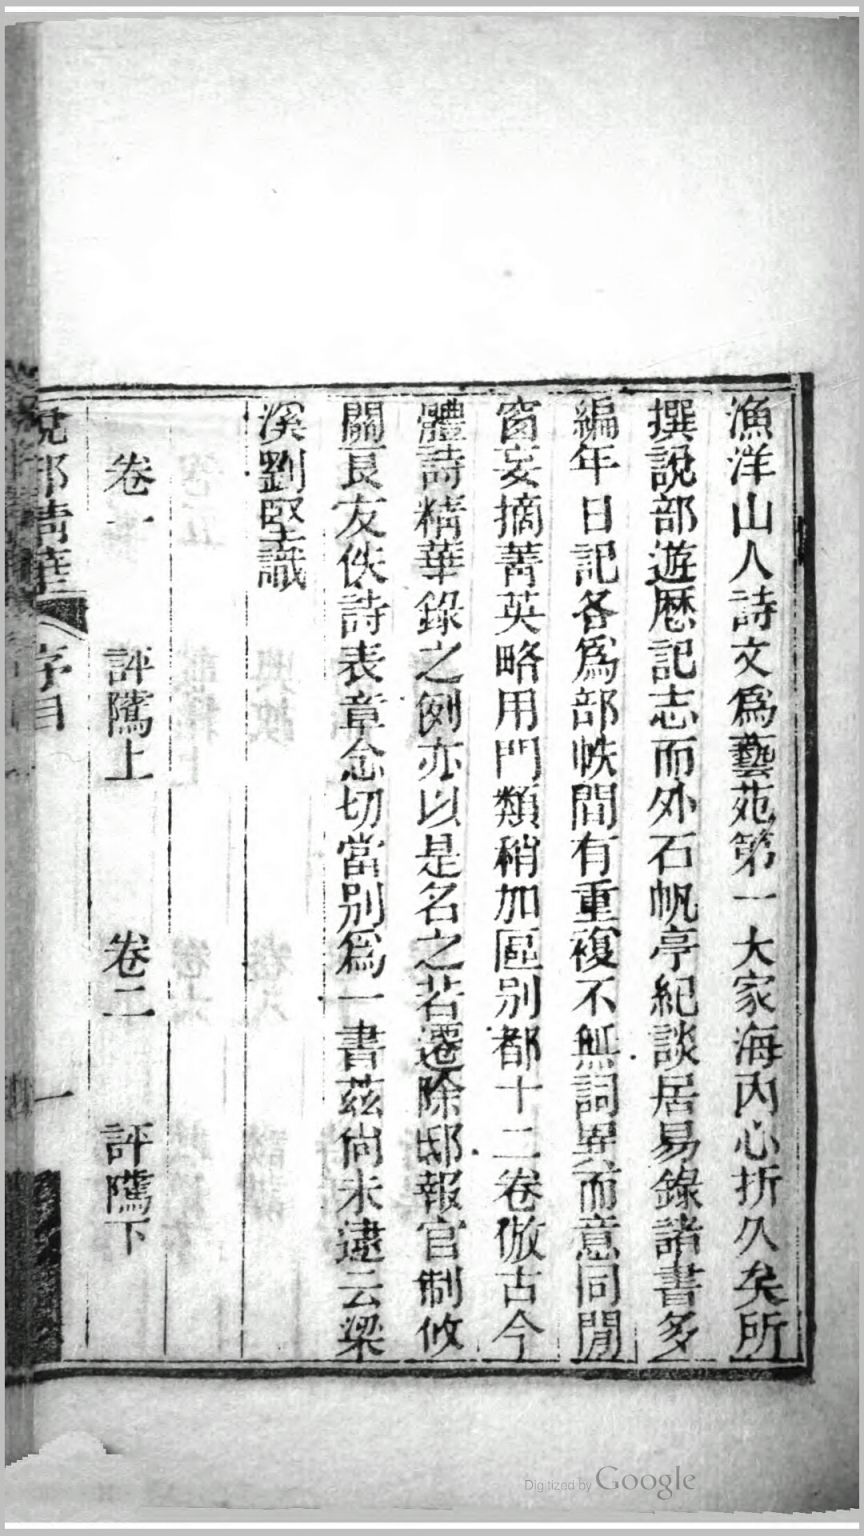 漁洋山人詩文爲藝苑第一大家海內心折久矣所
撰說部遊歷記志而外石帆亭紀談居易錄諸書多
編年日記各爲部帙間有重複不無詞異而意同閒
窗妄摘菁英略用門類稍加區別都十二卷倣古今
體詩精華錄之例亦以是名之若遷除邸報官制攸
關良友佚詩表章念切當別爲一書茲尙未逮云梁
溪劉堅識
卷一 評隲上 卷二 評隲下
說部精華 序目 一
Digitized by Google